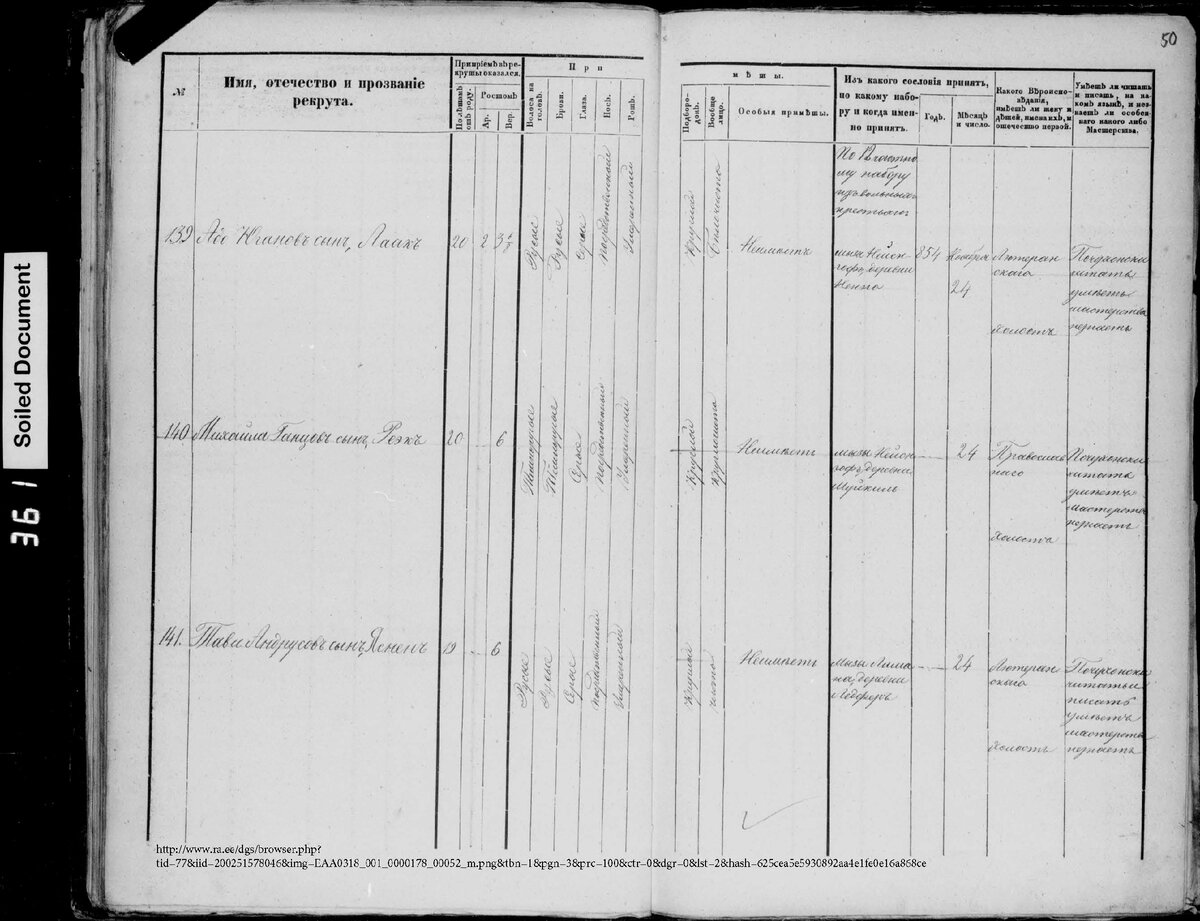 50
№
Имя, отечество и прозваніе
рекрута.
При пріемѣ въ ре-
круты оказался.
По лѣтамъ
отъ роду.
Ростомъ
Ар.
Вер.
При
мѣты.
Волоса на
головѣ.
Брови.
Глаза.
Носъ.
Ротъ.
Подборо-
докъ.
Вообще
лицо.
Особыя примѣты.
Изъ какого сословія принятъ,
по какому набо-
ру и когда имен-
но принятъ.
Годъ.
Мѣсяцъ
и число.
Какого Вѣроиспо-
вѣданія,
имѣетъ ли жену и
дѣтей, имена ихъ, и
отчество первой.
Умѣетъ ли читать
и писать, на ка-
комъ языкѣ, и не
знаетъ ли особен-
наго какого либо
Мастерства.
139
Югановъ сынъ, Лаакъ
20
2
3
Русые
Русые
Сѣрые
Посредственный
Умѣренный
Круглый
Неимѣетъ
набору
мызы Нейон-
гофъ деревни
854
Ноября
24
Лютеран
скаго
Холостъ
Почухонски
читать
умѣетъ
мастерства
незнаетъ
140
Михайла Ганцовъ сынъ, Рээкъ
20
6
Сѣрые
Посредственный
Умѣренный
Круглый
Неимѣетъ
мызы Нейон-
гофъ деревни
24
Православ
наго
Холостъ
Почухонски
читать
умѣетъ
мастерства
незнаетъ
141.
Тави Андрусовъ сынъ, Ясненъ
19
6
Русые
Русые
Сѣрые
Умѣренный
Круглый
чисто
Неимѣетъ
мызы
деревни
24
Лютеран
скаго
Холостъ
Почухонски
читать и
писать
умѣетъ
мастерства
незнаетъ
Soiled Document
36 1
http://www.ra.ee/dgs/browser.php?
tid=77&iid=200251578046&img=EAA0318_001_0000178_00052_m.png&tbn=1&pgn=3&prc=100&ctr=0&dgr=0&lst=2&hash=625cea5e5930892aa4e1fe0e16a868ce